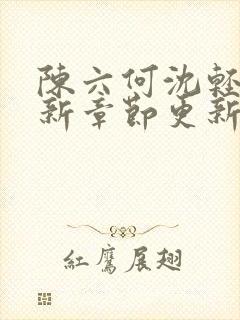 陳六何沈輕
新章節更新
紅鷹展翅